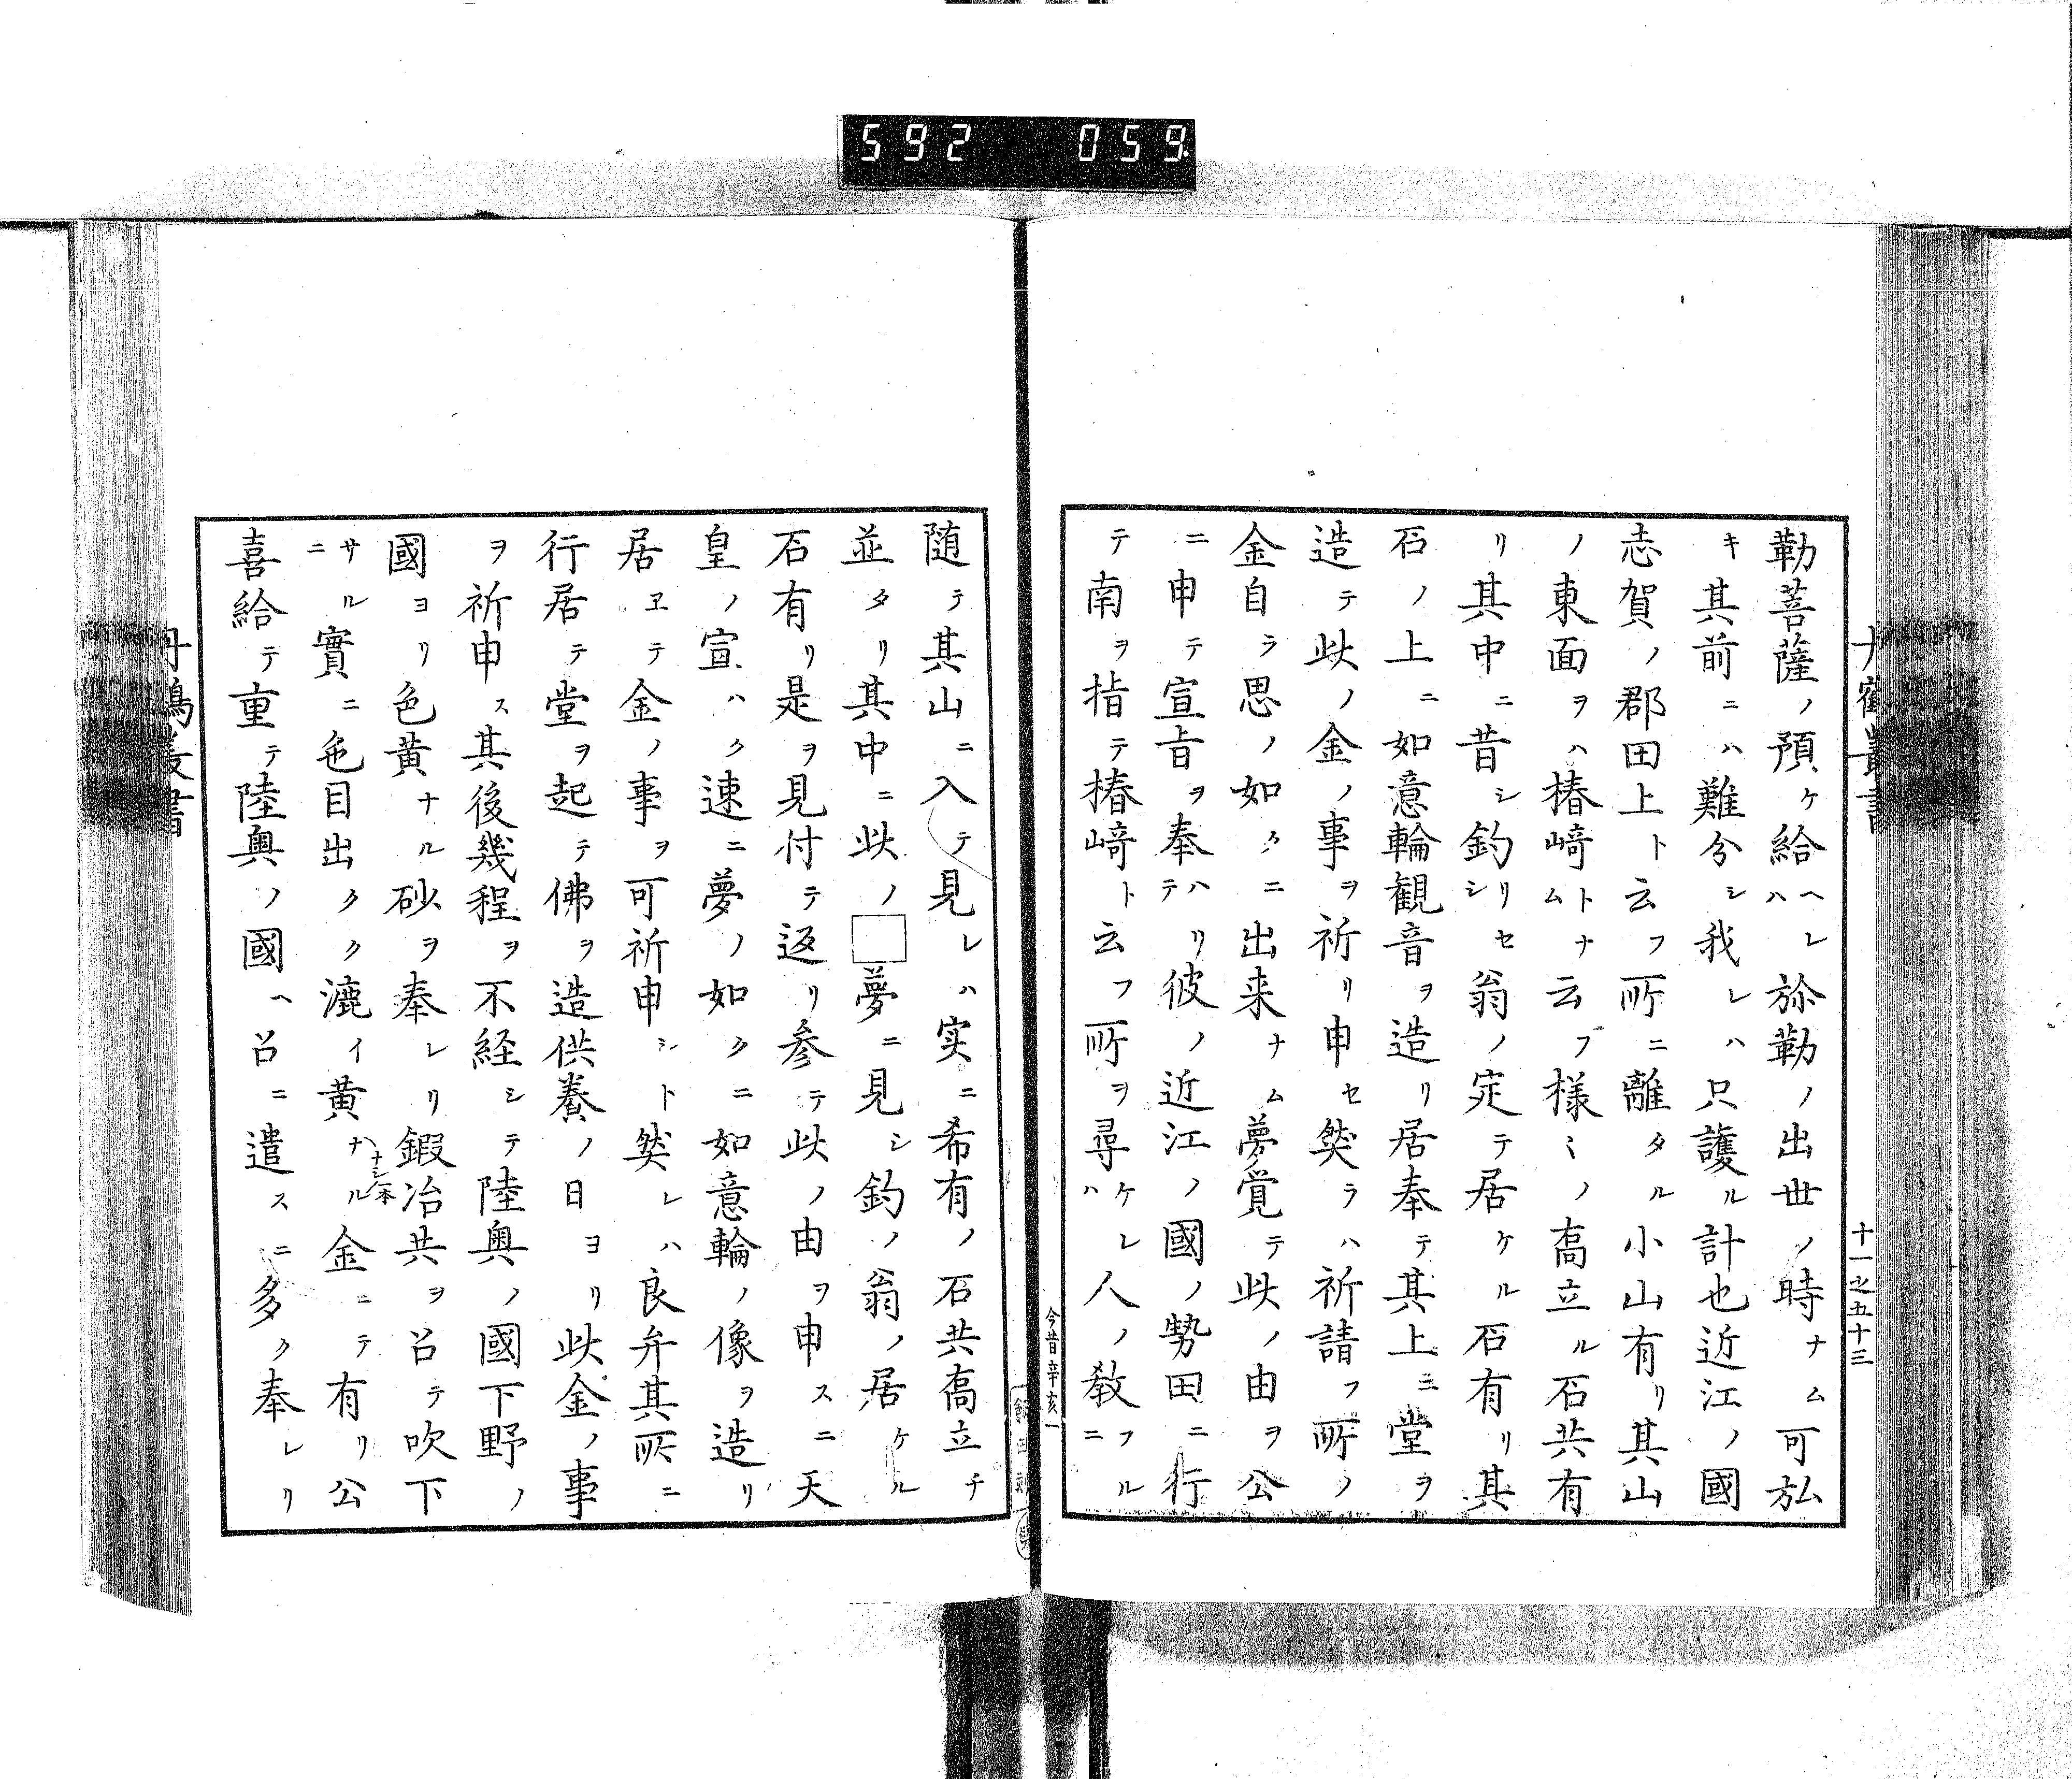 592 059
十一之五十三
勒菩薩ノ預ケ給ヘレハ弥勒ノ出世ノ時ナム可弘
キ其前ニハ難分シ我レハ只護ル計也近江ノ國
志賀ノ郡田上ト云フ所ニ離タル小山有リ其山
ノ東面ヲハ椿﨑トナム云フ様〻ノ高立ル石共有
リ其中ニ昔シ釣リセシ翁ノ定テ居ケル石有リ其
石ノ上ニ如意輪観音ヲ造リ居奉テ其上ニ堂ヲ
造テ此ノ金ノ事ヲ祈リ申セ然ラハ祈請フ所ノ
金自ラ思ノ如クニ出来ナム夢覚テ此ノ由ヲ公
ニ申テ宣旨ヲ奉ハリテ彼ノ近江ノ國ノ勢田ニ行
テ南ヲ指テ椿﨑ト云フ所ヲ尋ケレハ人ノ教フルニ
今昔辛亥一
随テ其山ニ入テ見レハ实ニ希有ノ石共高立チ
並タリ其中ニ此ノ□夢ニ見シ釣ノ翁ノ居ケル
石有リ是ヲ見付テ返リ参テ此ノ由ヲ申スニ天
皇ノ宣ハク速ニ夢ノ如クニ如意輪ノ像ヲ造リ
居ヱテ金ノ事ヲ可祈申シト然レハ良弁其所ニ
行居テ堂ヲ起テ佛ヲ造供養ノ日ヨリ此金ノ事
ヲ祈申ス其後幾程ヲ不経シテ陸奥ノ國下野ノ
國ヨリ色黄ナル砂ヲ奉レリ鍜冶共ヲ召テ吹下
サルニ實ニ色目出クク漉イ黄ナル金ニテ有リ公
ハナシ一本
喜給テ重テ陸奥ノ國ヘ召ニ遣スニ多ク奉レリ